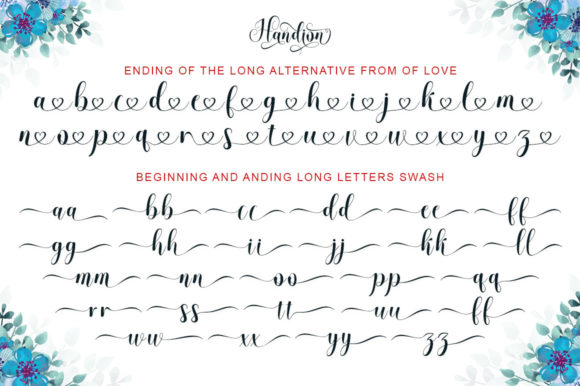 Handion
ENDING OF THE LONG ALTERNATIVE FROM OF LOVE
a b c d e f g h i j k l m
n o p q r s t u v w x y z
BEGINNING AND ANDING LONG LETTERS SWASH
aa bb cc dd ee ff
gg hh ii jj kk ll
mm nn oo pp qq
rr ss tt uu ff
ww xx yy zz